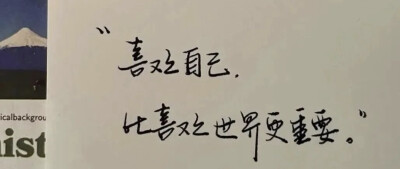 “喜欢自己，
比喜欢世界更重要。”
icalbackgrou
nist